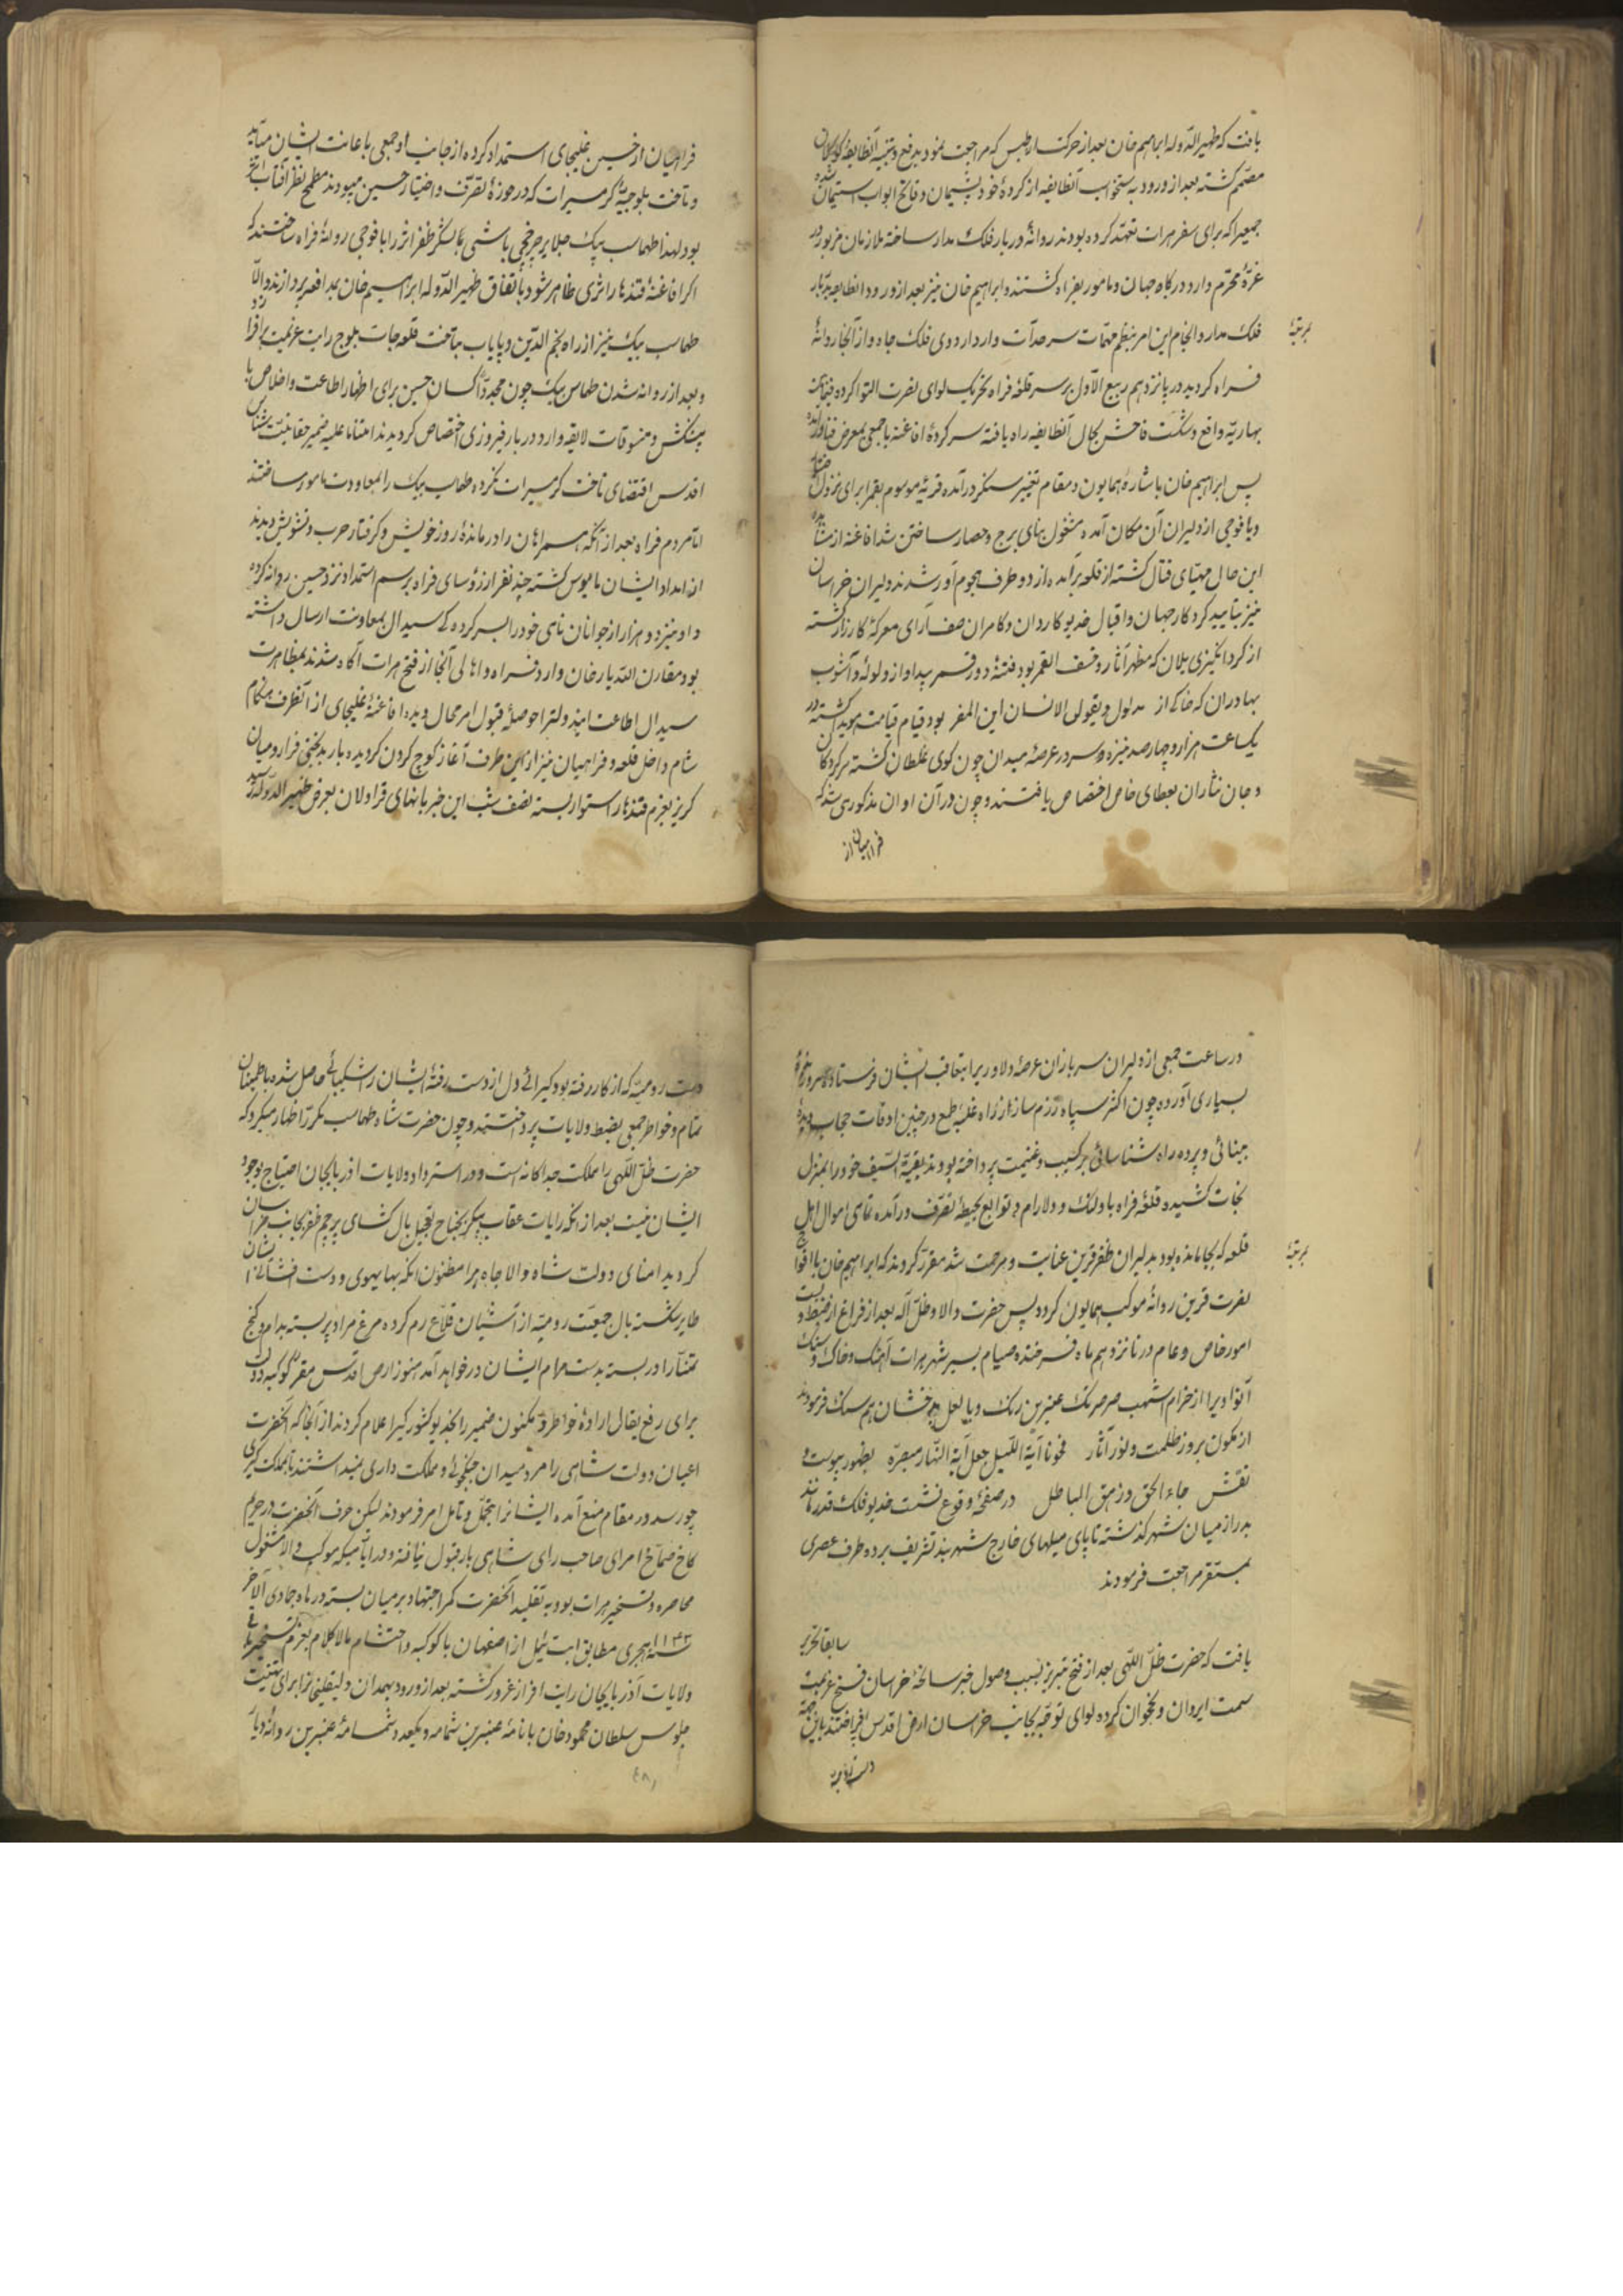 یافت که ظهیر الدوله ابراهیم خان بعد از حرکت از طبس که مراجعت نمود بدفع و تنبیه آنطایفه
مصمم گشته بعد از ورود به آنطایفه از کردهٔ خود پشیمان و فاتح ابواب استیمان شده
جمعیرا که برای سفر هرات تعهد کرده بودند روانهٔ دربار فلک مدار ساخته ملازمان مزبور در
غرهٔ محرم وارد درگاه جهان و مامور بفراه گشتند و ابراهیم خان نیز بعد از ورود انطایفه بدربار
فلک مدار و انجام این امر بنظم مهمات سرحدات وارد اردوی فلک جاه و از آنجا روانهٔ
فراه گردید در پانزدهم ربیع الاول بر سر قلعهٔ فراه تحریک لوای نصرت التوا کرده
بهاریه واقع و شکست فاحش بحال آنطایفه راه یافته سرکردهٔ افاغنه با جمعی بمعرض فنا در آمده
پس ابراهیم خان باشارهٔ همایون در مقام تغییر سنگر در آمده قریهٔ موسوم بقمر ا برای نزول
و با فوجی از دلیران آن مکان آمده مشغول بنای برج و حصار ساختن شد افاغنه از مشاهده
این حال مهیای قتال گشته از قلعه برآمده از دو طرف هجوم آور شدند دلیران خراسان
نیز بتایید کردگار جهان و اقبال خدیو کاردان و کامران صف آرای معرکهٔ کارزار گشته
از گرد انگیزی یلان که مظهر آثار و خسف القمر بود فتنهٔ دور قمر پیدا و از ولوله و آشوب
بهادران که حاکی از مدلول و یقول الانسان این المفر بود قیام قیامت هویدا گشته در
یکساعت هزار و چهارصد نیزه و سر در عرصهٔ میدان چون گوی غلطان گشته سرکردگان
و جان نثاران بعطای خاص اختصاص یافتند و چون در آن اوان مذکور می شد که
فراهیان از
فراهیان از حسین غلیجای استمداد کرده از جانب او جمعی باعانت ایشان میآید
و تاخت بلوچیهٔ گرمسیرات که در حوزهٔ تصرف و اختیار حسین میبودند مطمح نظر آفتاب اثر
بود لهذا طهماسب بیک جلایر چرخچی باشی عساکر ظفر اثر را با فوجی روانهٔ فراه ساختند که
اگر افاغنهٔ قندهار اثری ظاهر شود باتفاق ظهیر الدوله ابراهیم خان بمدافعه پردازند و الا
طهماسب بیک نیز از راه نجم الدین و پایاب بتاخت قلعه جات بلوچ رایت عزیمت بر افرازد
و بعد از روانه شدن طهماسب بیک چون مجددا کسان حسین برای اظهار اطاعت و اخلاص با
پیشکش و تنسوقات لایقه وارد دربار فیروزی اختصاص گردیدند امتنانا علیه ضمیر حقانیت شناس
اقدس اقتضای تاخت گرمسیرات نکرده طهماسب بیک را بمعاودت مامور ساختند
اما مردم فراه بعد از آنکه همراهان را در ماندهٔ روز خویش و گرفتار حرب و تشویش دیدند
از امداد ایشان مایوس گشته چند نفر از رؤسای فراه برسم استمداد نزد حسین روانه کرده
و او نیز دو هزار از جوانان نامی خود را بسرکرده کی سیدال بمعاونت ارسال داشته
بود مقارن الله یار خان وارد فراه و اهالی آنجا از فتح هرات آگاه شدند بمظاهرت
سیدال اطاعت ایندولترا حوصلهٔ قبول امر محال دیده افاغنهٔ غلیجای از آنطرف هنگام
شام داخل قلعه و فراهیان نیز از این طرف آغاز کوچ کردن گردیده بار بدبختی فرا رو میان
گریز بعزم قندهار استوار بسته نصف شب این خبر بانهای قراولان بعرض ظهیر الدوله رسید
در ساعت جمعی از دلیران سربازان عرصهٔ دلاوریرا بتعاقب ایشان فرستاده سر و زندهٔ
بسیاری آورده چون اکثر سپاه رزم ساز از راه غلبهٔ طمع در چنین اوقات حجاب دیدهٔ
بینائی و پرده راه شناسائی بر کسب و غنیمت پرداخته بودند بقیة السیف خود را بمنزل
نجات کشیده قلعهٔ فراه با ولنک و دلارام و توابع بحیطهٔ تصرف در آمده تمامی اموال اهل
قلعه که بجا مانده بود بدلیران ظفر قرین عنایت و مرحمت شد مقرر گردید که ابراهیم خان با افواج
نصرت قرین روانهٔ موکب همایون گردد پس حضرت والا و ظل اله بعد از فراغ از ضبط و بست
امور خاص و عام در پانزدهم ماه فرخنده صیام بسیر شهر هرات آهنگ و خاک و سنگ
آنوادیرا از خرام اشهب صرصر تک عنبرین رنگ و با لعل بدخشان هم سنگ فرمودند
از مکون بروز ظلمت و نور آثار فمحونا آیة اللیل جعل آیة النهار مبصرة بظهور پیوست و
نقش جاء الحق و زهق الباطل در صفحهٔ وقوع نشست خدیو فلک قدر مانند
بدر از میان شهر گذشته تا پای میلهای خارج شهر بند تشریف برده طرف عصری
بمستقر مراجعت فرمودند
سابقا تحریر
یافت که حضرت ظل اللهی بعد از فتح تبریز بسبب وصول خبر سانحهٔ خراسان فسخ عزیمت
سمت ایروان و نخجوان کرده لوای توجه بجانب خراسان ارض اقدس افراختند باین جهة
دست رومیه
دست رومیه که از کار رفته بود گیرائی دل از دست رفتهٔ ایشان را شکیبائی حاصل شده باطمینان
تمام و خواطر جمعی بضبط ولایات پرداختند و چون حضرت شاه طهماسب مکررا اظهار میکرد که
حضرت ظل اللهی را مملکت جداگانه است و در استرداد ولایات اذربایجان احتیاج بوجود
ایشان نیست بعد از آنکه رایات عقاب پیکر بجناح تعجیل بال گشای پرچم ظفر بجانب خراسان
گردید امنای دولت شاه والا جاه برا مظنون آنکه بهایهوی و دست افشانی ایشان
طایر شکسته بال جمعیت رومیه از آشیان قلاع رم کرده مرغ مراد پر بسته بدام و گنج
تمنا را در بسته بدست مرام ایشان در خواهد آمد هنوز ارض اقدس مقر کوکبهٔ دوران
برای رفع یقال ارادهٔ خواطر و مکنون ضمیر را بخدیو کشور گیرا علام کردند از آنجا که آنحضرت
اعیان دولت شاهی را مرد میدان جنگجوئی و مملکت داری نمیدانستند تا بمملکت گیری
چه رسد در مقام منع آمده ایشانرا بتحمل و تامل امر فرمودند لیکن حرف آنحضرت در حریم
کاخ صماخ امرای صاحب رای شاهی بار قبول نیافته در ایامیکه موکب والا مشغول
محاصره و تسخیر هرات بود به تقلید آنحضرت کمر اجتهاد بر میان بسته در ماه جمادی الآخر
سنه ۱۱۴۳ هجری مطابق ایت ئیل از اصفهان با کوکبه و احتشام مالا کلام بعزم تسخیر
ولایات آذربایجان رایت افراز غرور گشته بعد از ورود بهمدان ولیقلیخانرا برای تهنیت
جلوس سلطان محمود خان با نامهٔ عنبرین شمامه و یکعدد شمامهٔ عنبرین روانهٔ دیار
۴۸۱